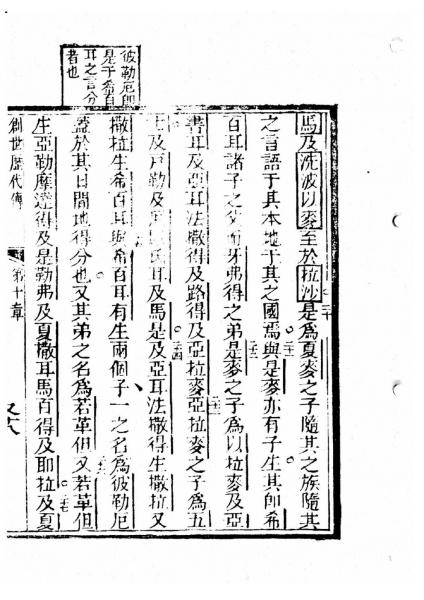 彼勒厄即
是于希百
耳之言分
者也
馬及洗波以麥至於拉沙是爲夏麥之子隨其之族隨其
之言語于其本地于其之國焉與是麥亦有子生其即希
百耳諸子之父而牙弗得之弟是麥之子爲以拉麥及亞
書耳及亞耳法撒得及路得及亞拉麥亞拉麥之子爲五
士及戶勒及耳及馬是及亞耳法撒得生撒拉又
撒拉生希百耳與希百耳有生兩個子一之名爲彼勒厄
蓋於其日間地得分也又其弟之名爲若革但又若革但
生亞勒摩達得及是勒弗及夏撒耳馬百得及耶拉及夏
創世歷代傳
第十章